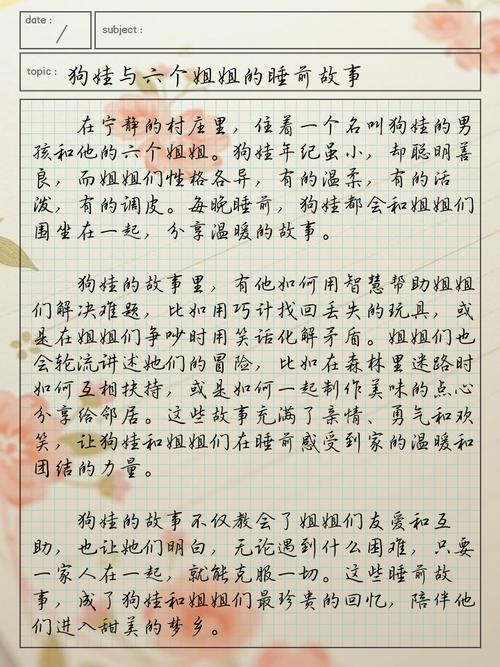 date :
subject :
topic : 狗娃与六个姐姐的睡前故事
在宁静的村庄里，住着一个名叫狗娃的男
孩和他的六个姐姐。狗娃年纪虽小，却聪明善
良，而姐姐们性格各异，有的温柔，有的活
泼，有的调皮。每晚睡前，狗娃都会和姐姐们
围坐在一起，分享温暖的故事。
狗娃的故事里，有他如何用智慧帮助姐姐
们解决难题，比如用巧计找回丢失的玩具，或
是在姐姐们争吵时用笑话化解矛盾。姐姐们也
会轮流讲述她们的冒险，比如在森林里迷路时
如何互相扶持，或是如何一起制作美味的点心
分享给邻居。这些故事充满了亲情、勇气和欢
笑，让狗娃和姐姐们在睡前感受到家的温暖和
团结的力量。
狗娃的故事不仅教会了姐姐们友爱和互
助，也让她们明白，无论遇到什么困难，只要
一家人在一起，就能克服一切。这些睡前故
事，成了狗娃和姐姐们最珍贵的回忆，陪伴他
们进入甜美的梦乡。